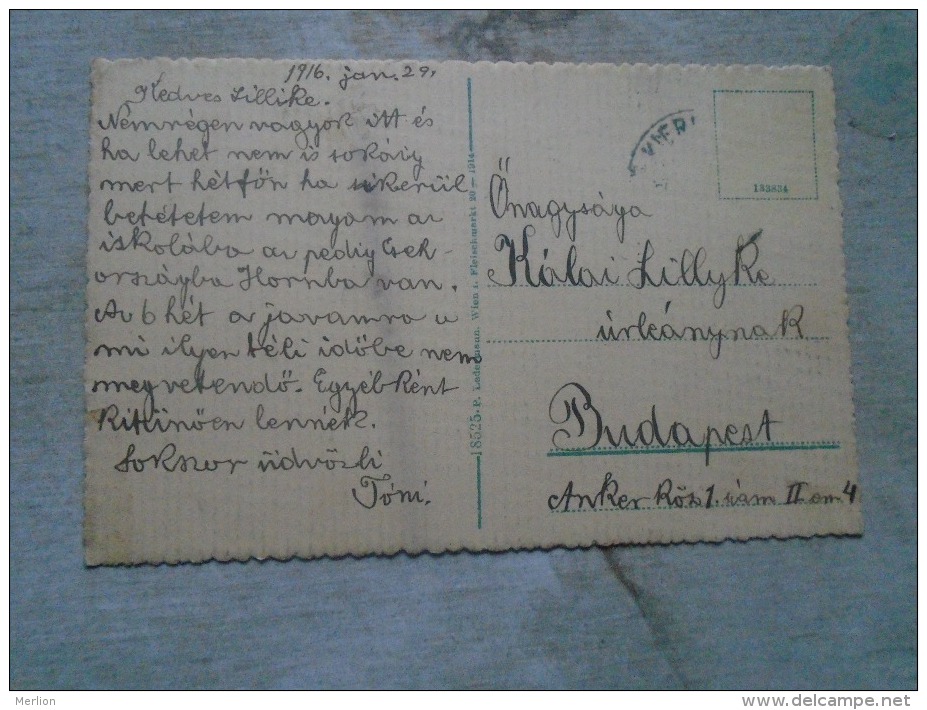 1916. jan. 29.
Kedves Lillike.
Nemrégen vagyok itt és
ha lehet nem is sokáig
mert hétfőn ha sikerül
betétetem magam az
iskolába az pedig Cseh-
országba Hornba van.
Az 6 hét az javamra a
mi ilyen téli időbe nem
megvetendő. Egyébként
kitünően lennék.
Sokszor üdvözli
Tóni.
18525 P. Ledermann. Wien I. Fleischmarkt 20 — 1914
133834
Őnagysága
Kálai Lillyke
úrleánynak
Budapest
Anker köz 1. szám II em 4
Merlion
www.delcampe.net